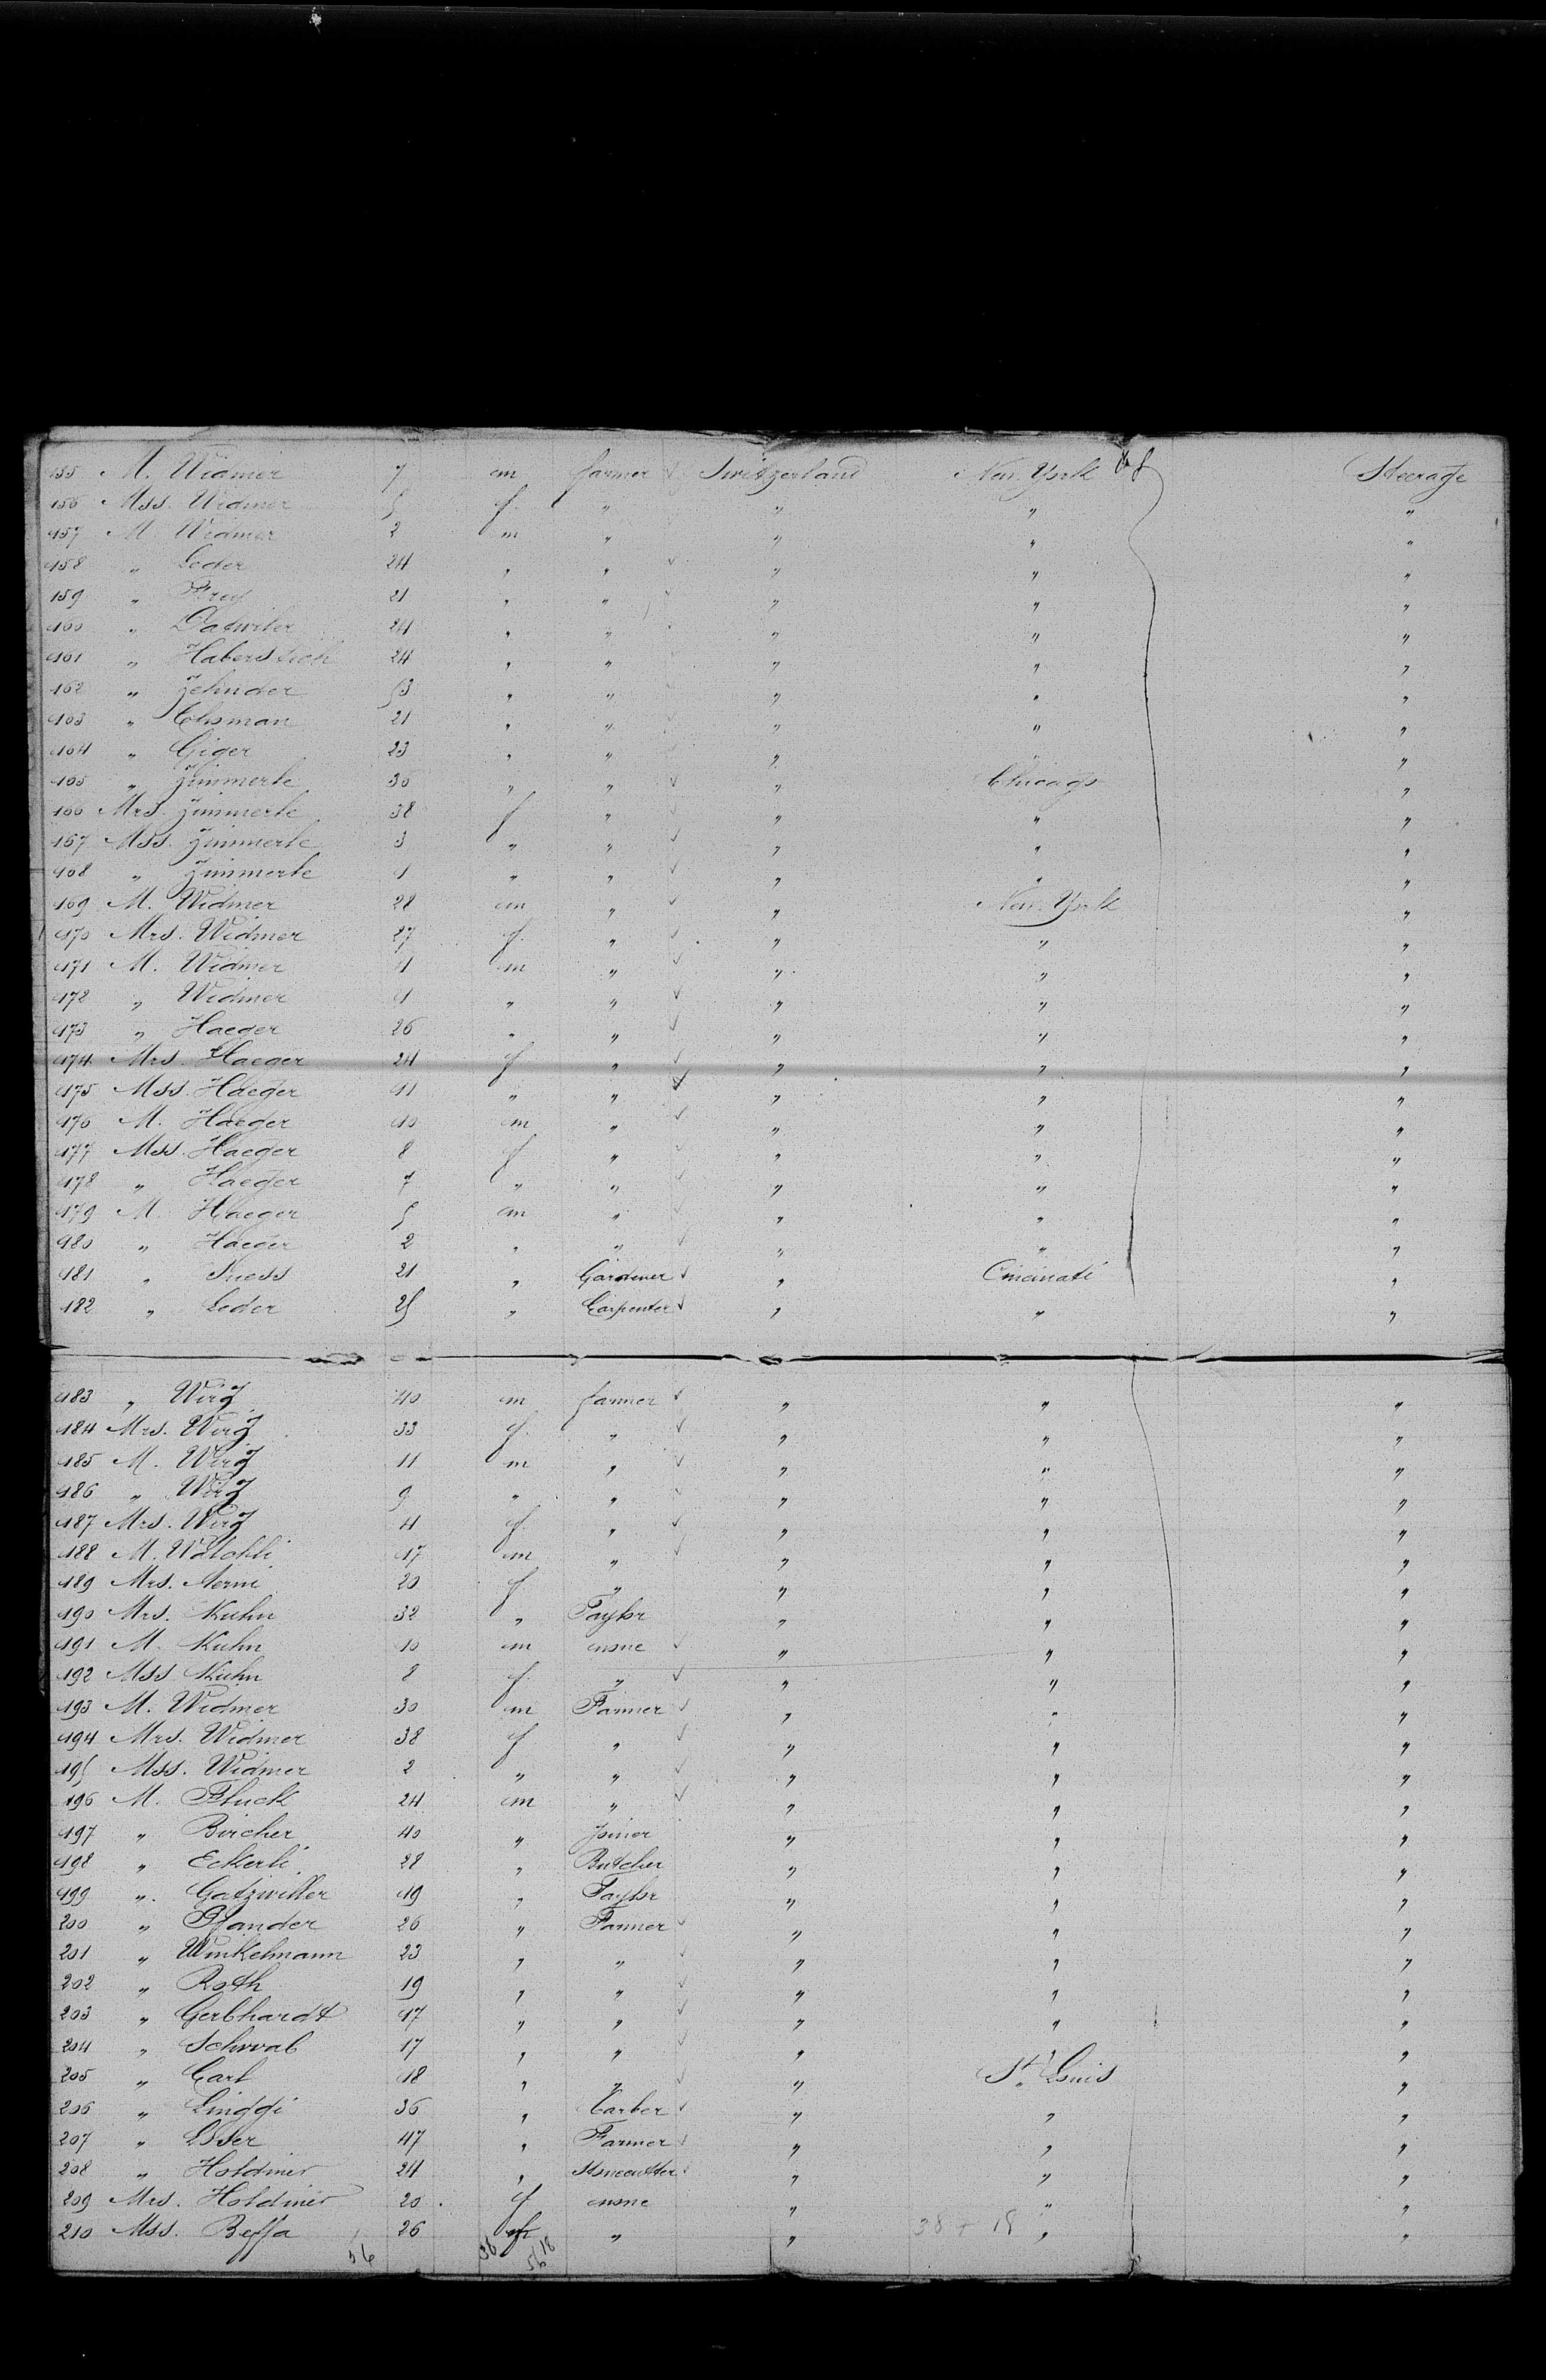 155 M. Widmer 7 m farmer Switzerland New York Steerage
156 Mss. Widmer 5 f. " " " "
157 M. Widmer 2 m " " " "
158 " Leder 24 " " " " "
159 " Frey 21 " " " " "
160 " Datwiler 24 " " " " "
161 " Haberstich 24 " " " " "
162 " Zehnder 53 " " " " "
163 " Ehsman 21 " " " " "
164 " Giger 23 " " " " "
165 " Zimmerle 30 " " " Chicago "
166 Mrs. Zimmerle 38 f " " " "
167 Mss. Zimmerle 3 " " " " "
168 " Zimmerle 1 " " " " "
169 M. Widmer 28 m " " New York "
170 Mrs. Widmer 27 f. " " " "
171 M. Widmer 4 m " " " "
172 " Widmer 1 " " " " "
173 " Haeger 26 " " " " "
174 Mrs. Haeger 24 f " " " "
175 Mss. Haeger 11 " " " " "
176 M. Haeger 10 m " " " "
177 Mss. Haeger 8 f " " " "
178 " Haeger 7 " " " " "
179 M. Haeger 5 m " " " "
180 " Haeger 2 " " " " "
181 " Suess 21 " Gardener " Cincinati "
182 " Leder 25 " Carpenter " " "
183 " Wirz 40 m farmer " " "
184 Mrs. Wirz 33 f. " " " "
185 M. Wirz 11 m " " " "
186 " Wirz 9 " " " " "
187 Mrs. Wirz 4 f. " " " "
188 M. Walchli 17 m " " " "
189 Mrs. Aerni 20 f " " " "
190 Mrs. Kuhn 32 " Taylor " " "
191 M. Kuhn 10 m none " " "
192 Mss Kuhn 8 f. " " " "
193 M. Widmer 30 m Farmer " " "
194 Mrs. Widmer 38 f " " " "
195 Mss. Widmer 2 " " " " "
196 M. Fluck 24 m " " " "
197 " Bircher 40 " Joiner " " "
198 " Eckerli 28 " Butcher " " "
199 " Gatzwiller 19 " Taylor " " "
200 " Pfander 26 " Farmer " " "
201 " Winkelmann 23 " " " " "
202 " Roth 19 " " " " "
203 " Gerbhardt 17 " " " " "
204 " Schwab 17 " " " " "
205 " Carl 18 " " " St Louis "
206 " Linggi 36 " Barber " " "
207 " Esser 47 " Farmer " " "
208 " Holdiner 24 " Stonecutter " " "
209 Mrs. Holdiner 20 f none " " "
210 Mss. Beffa 26 " " " "
38 + 18
56 38 18
56